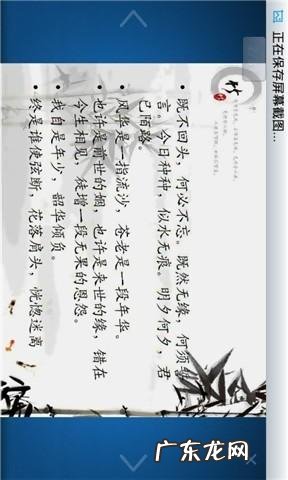 正在保存屏幕截图...
竹
• 既不回头，何必不忘。既然无缘，何须誓
言。今日种种，似水无痕。明夕何夕，君
已陌路
• 风华是一指流沙，苍老是一段年华。
• 也许是前世的姻，也许是来世的缘，错在
今生相见，徒增一段无果的恩怨。
• 我自是年少，韶华倾负。
• 终是谁使弦断，花落肩头，恍惚迷离
广东龙网